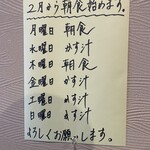 2月より朝食始めます。
月曜日 朝食
水曜日 かす汁
木曜日 朝食
金曜日 かす汁
土曜日 かす汁
日曜日 かす汁
よろしくお願いします。